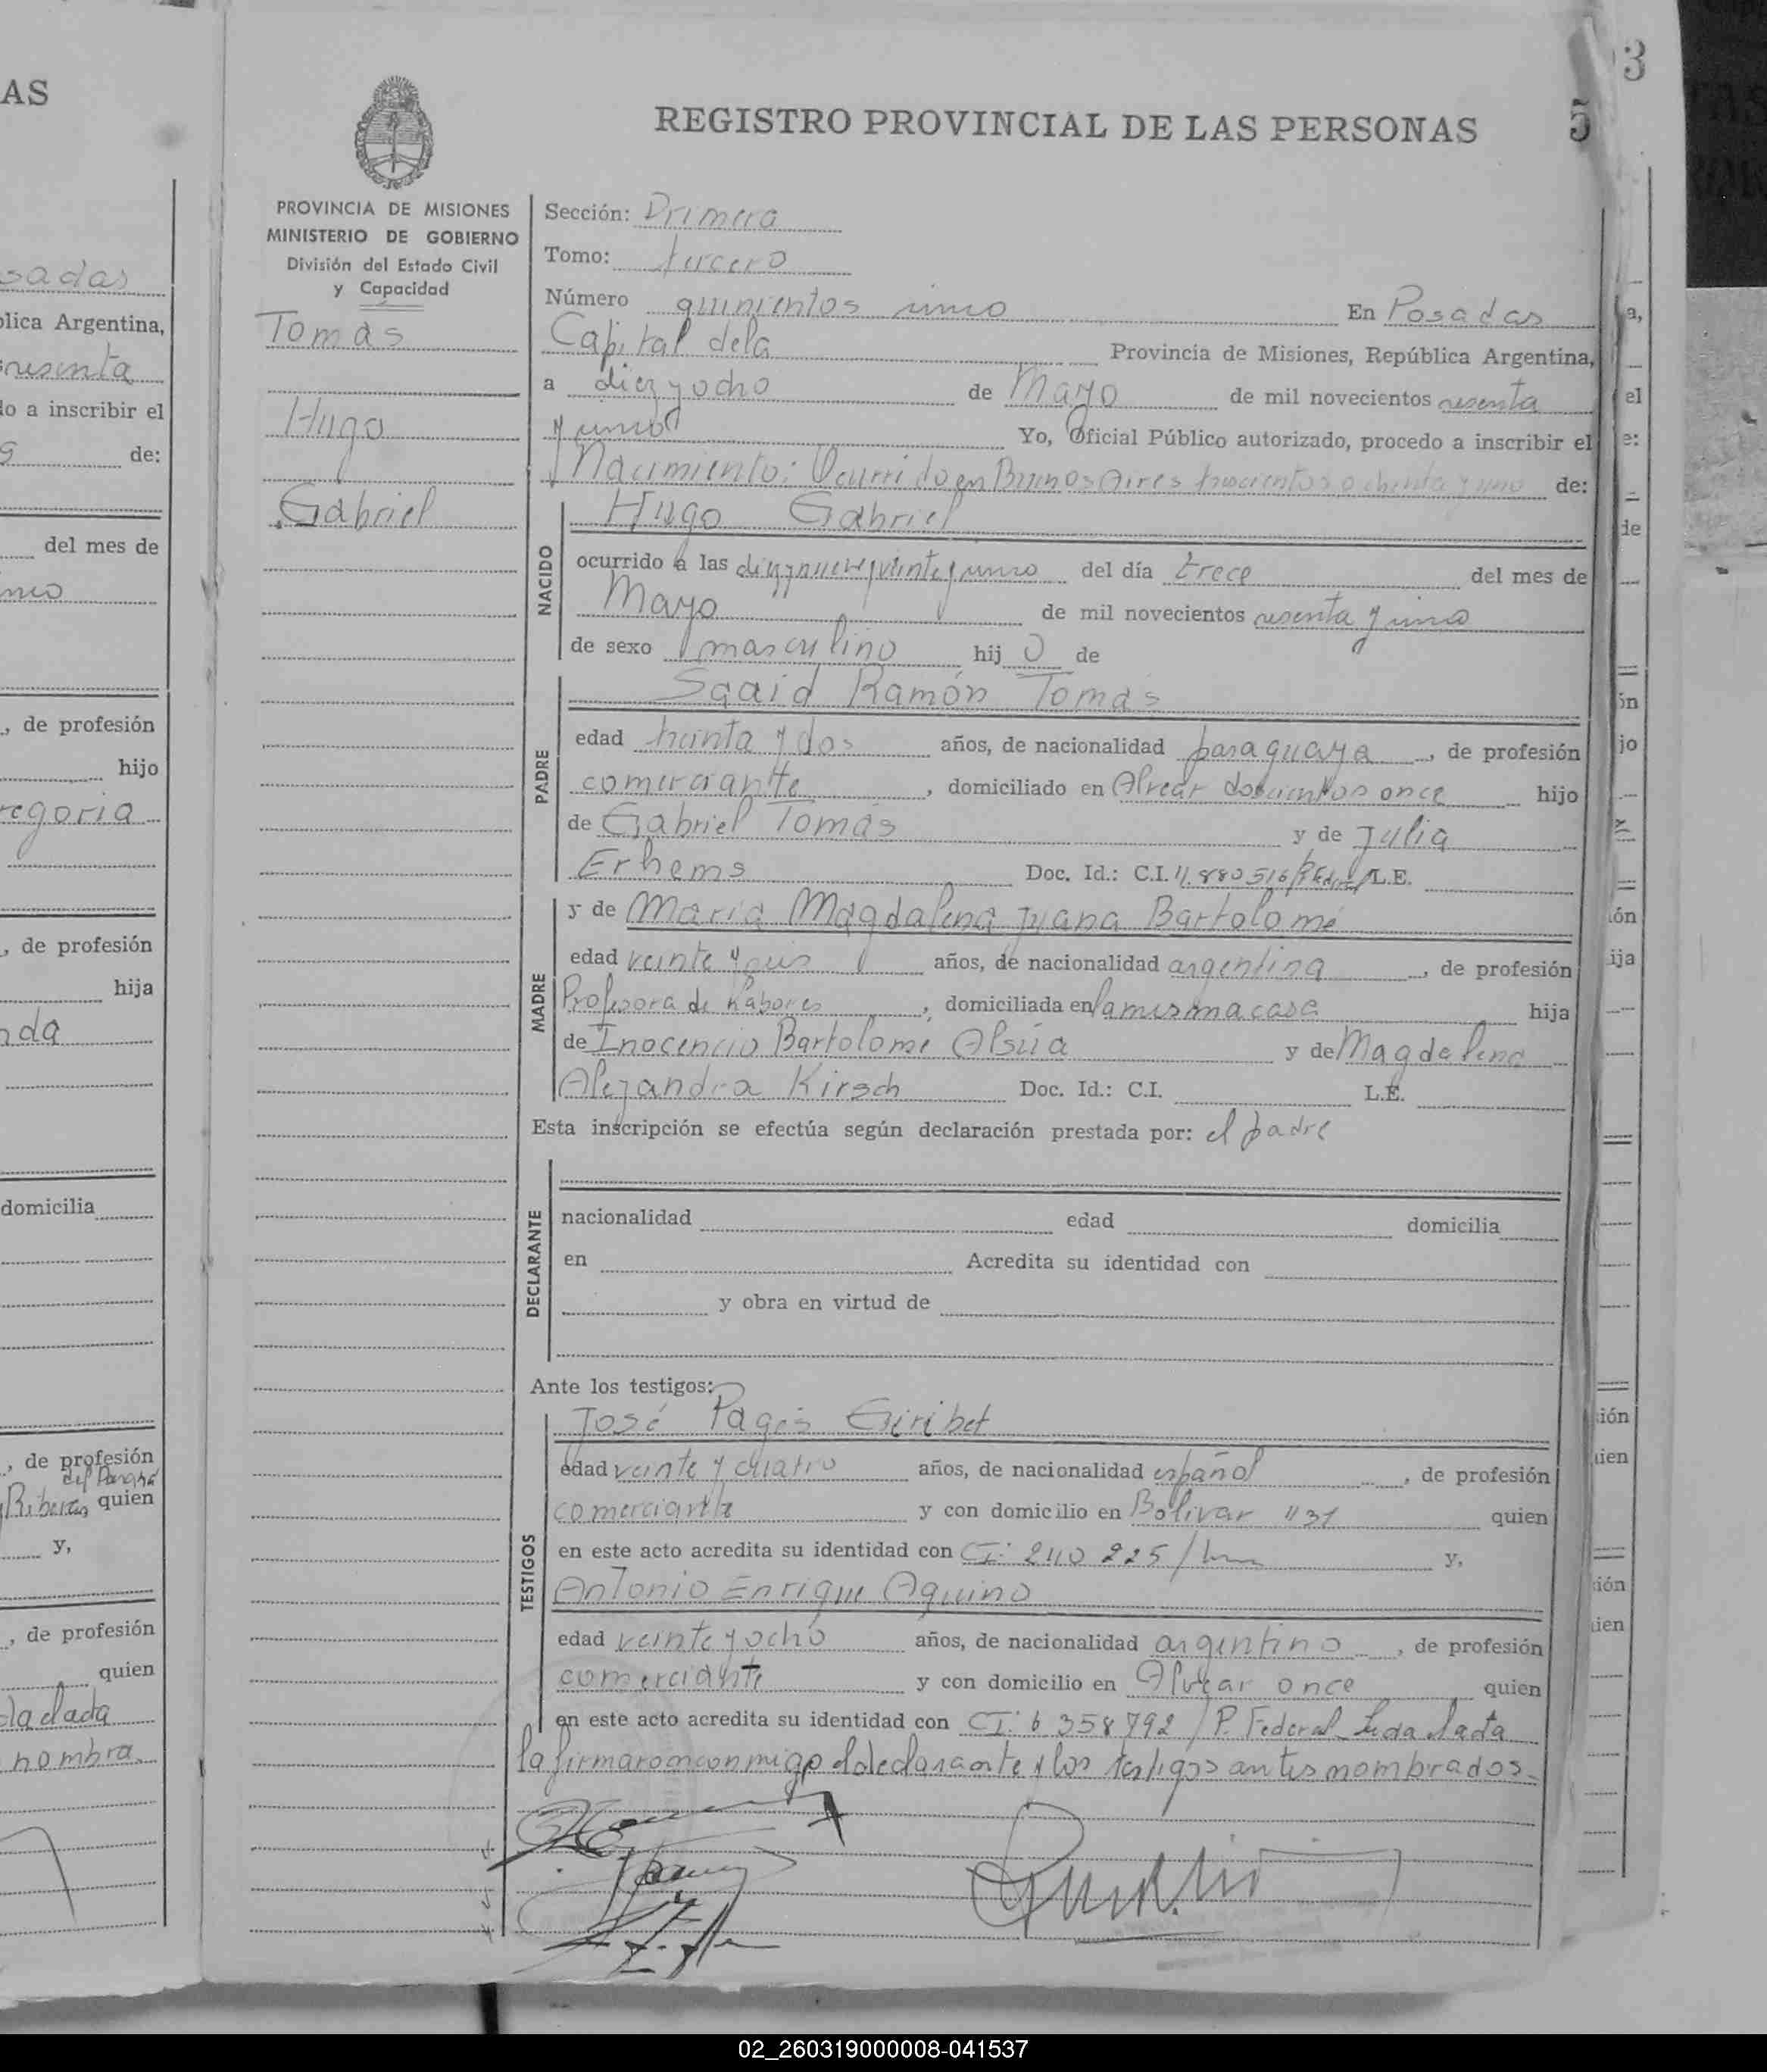 AS
sadas
blica Argentina,
resenta
do a inscribir el
de:
del mes de
, de profesión
hijo
regoria
, de profesión
hija
nda
domicilia
, de profesión
del Paraná
quien
y,
, de profesión
quien
da dada
nombra
3
5
REGISTRO PROVINCIAL DE LAS PERSONAS
PROVINCIA DE MISIONES
MINISTERIO DE GOBIERNO
División del Estado Civil
y Capacidad
Tomás
Hugo
Gabriel
Sección: Primera
Tomo: tercero
Número quinientos uno En Posadas
Capital dela Provincia de Misiones, República Argentina,
a diez y ocho de Mayo de mil novecientos sesenta
y uno Yo, Oficial Público autorizado, procedo a inscribir el
Nacimiento: Ocurrido en Buenos Aires trescientos ochenta y uno de:
NACIDO
Hugo Gabriel
ocurrido a las diez y nueve y veinte y uno del día trece del mes de
Mayo de mil novecientos sesenta y uno
de sexo masculino hij o de
PADRE
Sqaid Ramón Tomás
edad treinta y dos años, de nacionalidad paraguaya, de profesión
comerciante, domiciliado en Alvear doscientos once hijo
de Gabriel Tomás y de Julia
Erhems Doc. Id.: C.I. 11.880516/P.Federal L.E.
MADRE
y de María Magdalena Juana Bartolomé
edad veinte y seis años, de nacionalidad argentina, de profesión
Profesora de Labores, domiciliada en la misma casa hija
de Inocencio Bartolome Alsúa y de Magdalena
Alejandra Kirsch Doc. Id.: C.I. L.E.
Esta inscripción se efectúa según declaración prestada por: el padre
DECLARANTE
nacionalidad edad domicilia
en Acredita su identidad con
y obra en virtud de
Ante los testigos:
TESTIGOS
José Pagés Giribet
edad veinte y cuatro años, de nacionalidad español, de profesión
comerciante y con domicilio en Bolivar 1131 quien
en este acto acredita su identidad con CI: 240 225 y,
Antonio Enrique Aquino
edad veinte y ocho años, de nacionalidad argentino, de profesión
comerciante y con domicilio en Alvear once quien
en este acto acredita su identidad con CI: 6 358792 / P. Federal Leida lacta
la firmaron conmigo el declarante y los testigos antes nombrados
a,
el
e:
de
ón
jo
ión
ija
ión
uien
ión
uien
02_260319000008-041537